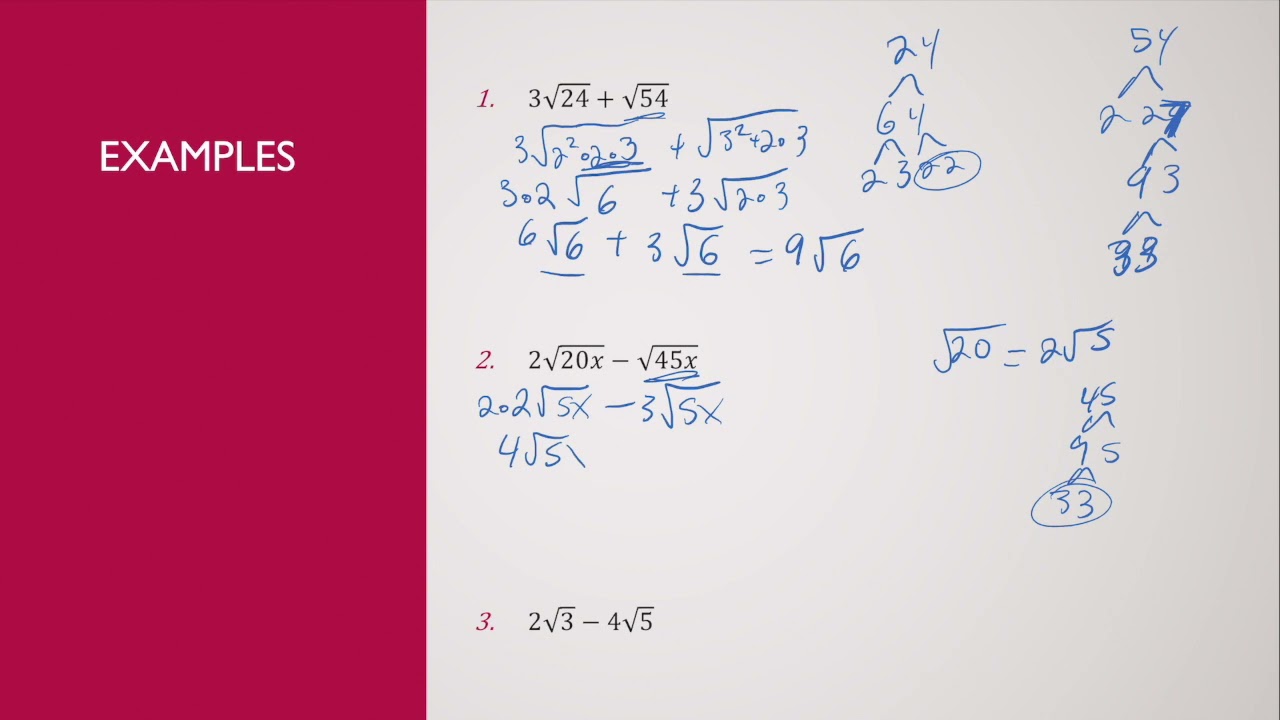 EXAMPLES
1. 3√24 + √54
3√2²·2·3 + √3²+2·3
3·2√6 + 3√2·3
6√6 + 3√6 = 9√6
24
6 4
2 3 2 2
54
2 27
9 3
3 3
2. 2√20x − √45x
2·2√5x − 3√5x
4√5
√20 = 2√5
45
9 5
3 3
3. 2√3 − 4√5